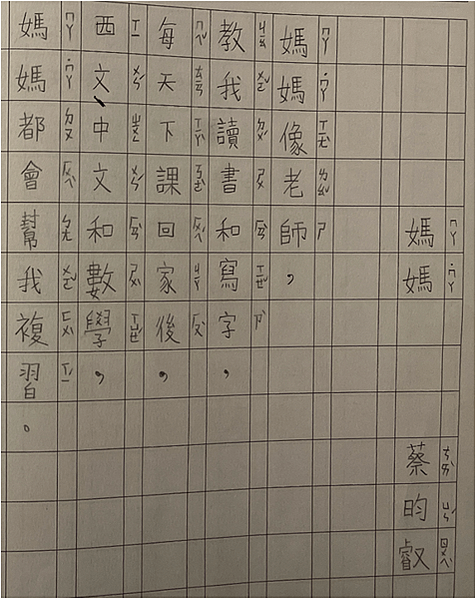 媽媽 蔡昀叡
媽媽像老師，
教我讀書和寫字，
每天下課回家後，
西文、中文和數學，
媽媽都會幫我複習。